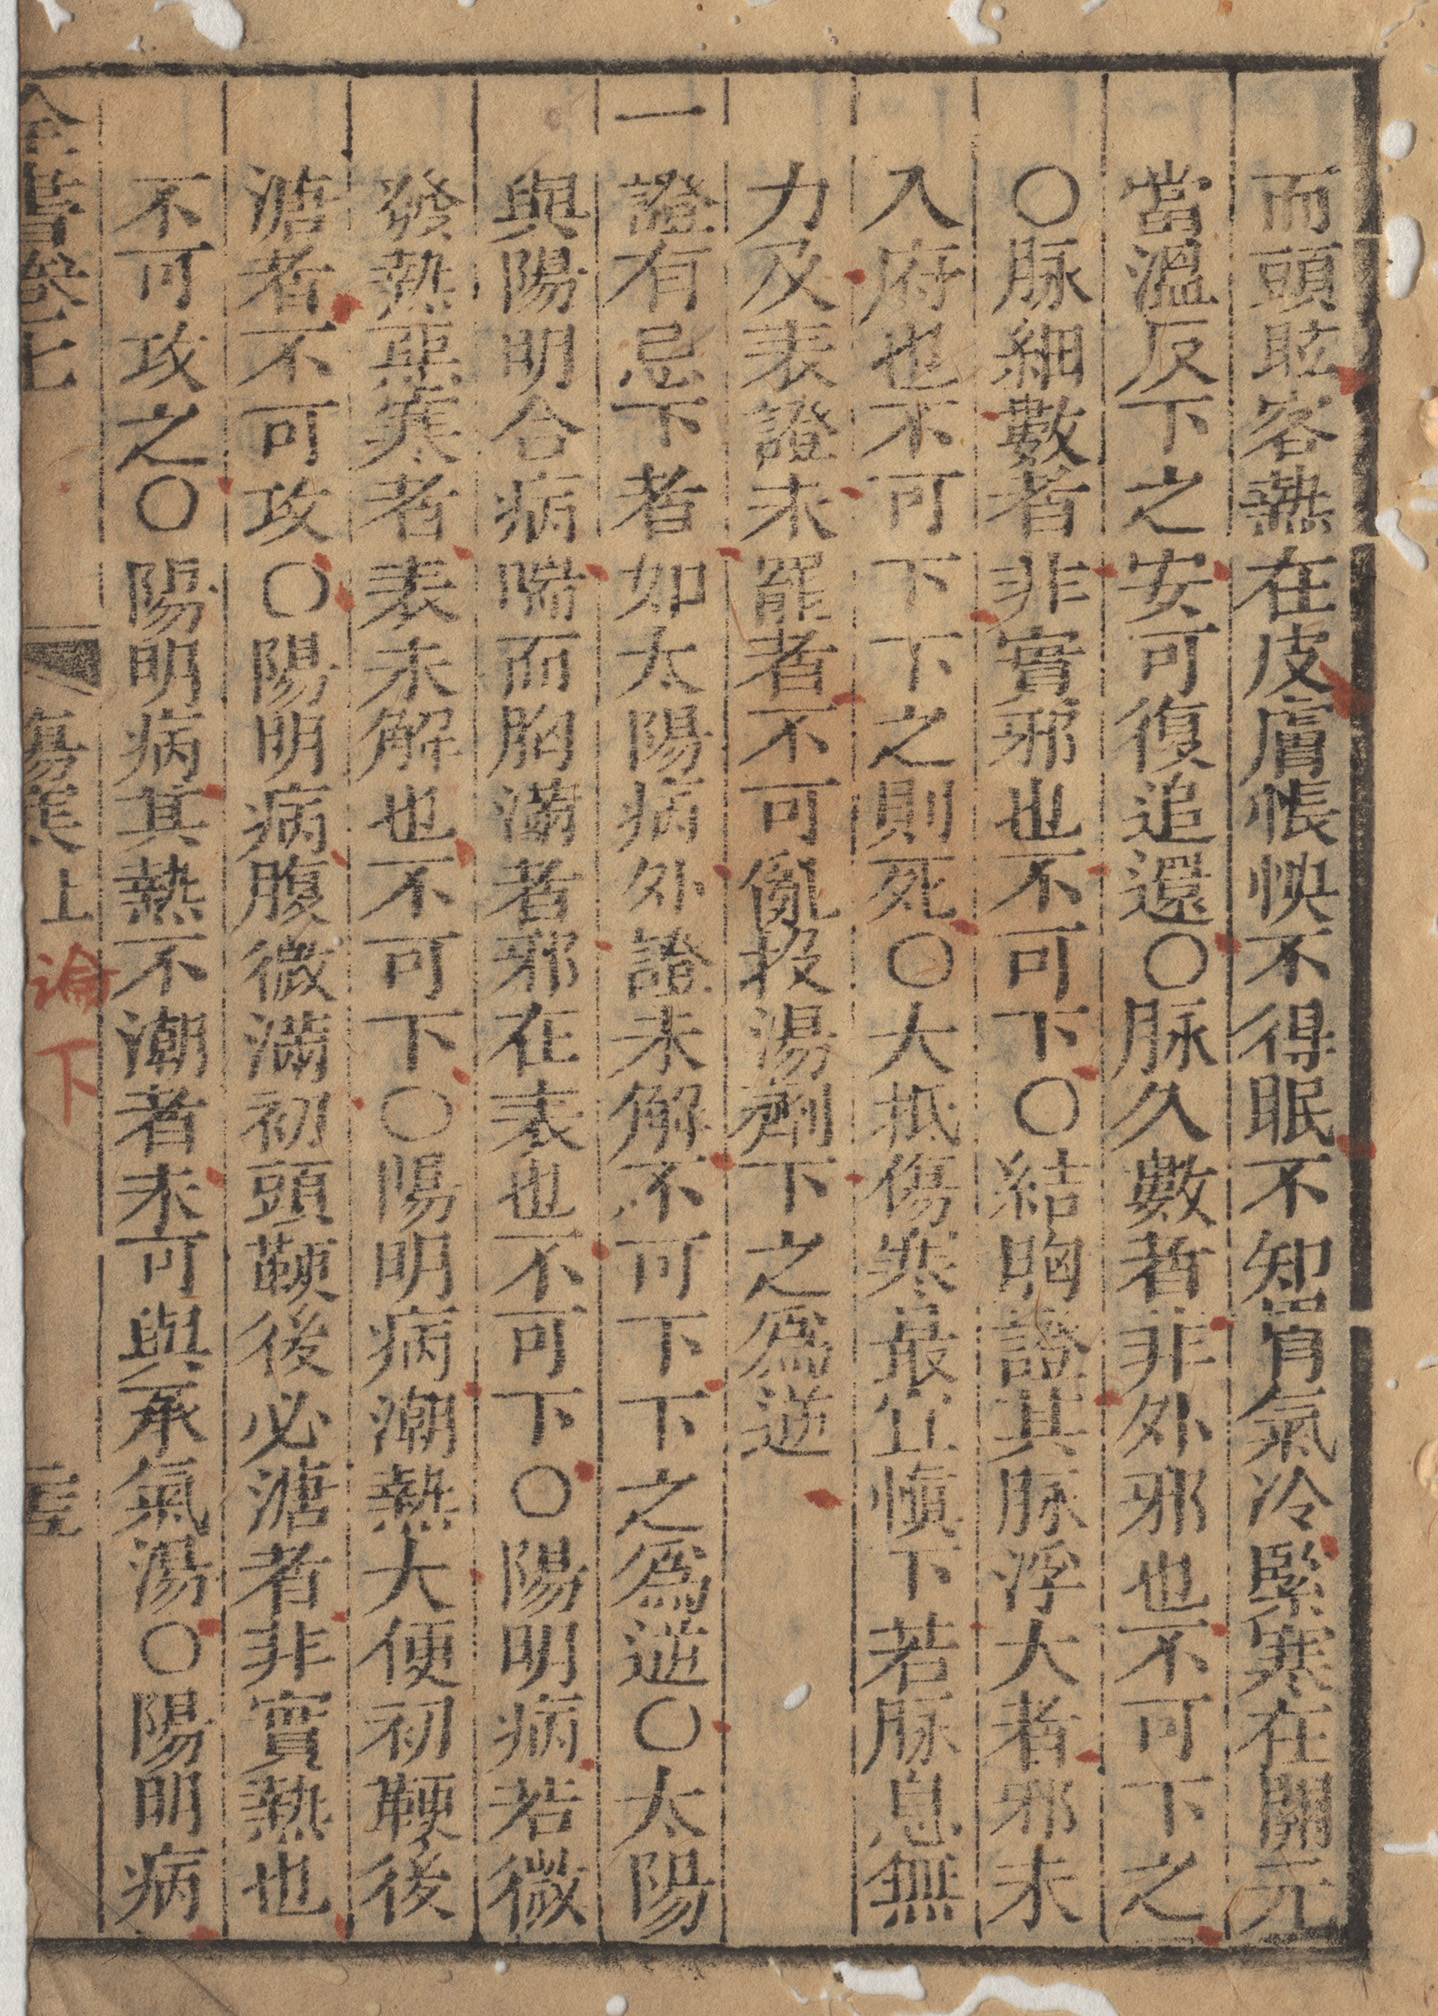 而頭眩客熱在皮膚悵怏不得眠不知胃氣冷緊寒在關元
當溫反下之安可復追還〇脉久數者非外邪也不可下之
〇脉細數者非實邪也不可下〇結胸證其脉浮大者邪未
入府也不可下下之則死〇大抵傷寒最宜慎下若脉息無
力及表證未罷者不可亂投湯劑下之爲逆
一證有忌下者如太陽病外證未解不可下下之爲逆〇太陽
與陽明合病喘而胸滿者邪在表也不可下〇陽明病若微
發熱惡寒者表未解也不可下〇陽明病潮熱大便初鞕後
溏者不可攻〇陽明病腹微滿初頭鞕後必溏者非實熱也
不可攻之〇陽明病其熱不潮者未可與承氣湯〇陽明病
全書卷七 傷寒上 論下